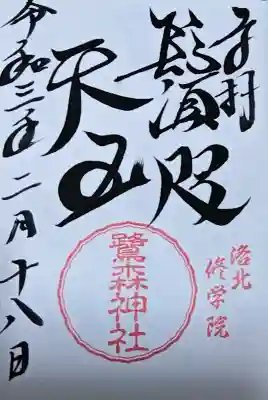 鬚咫
天王
洛北
修学院
鷺森神社
令和三年二月十八日